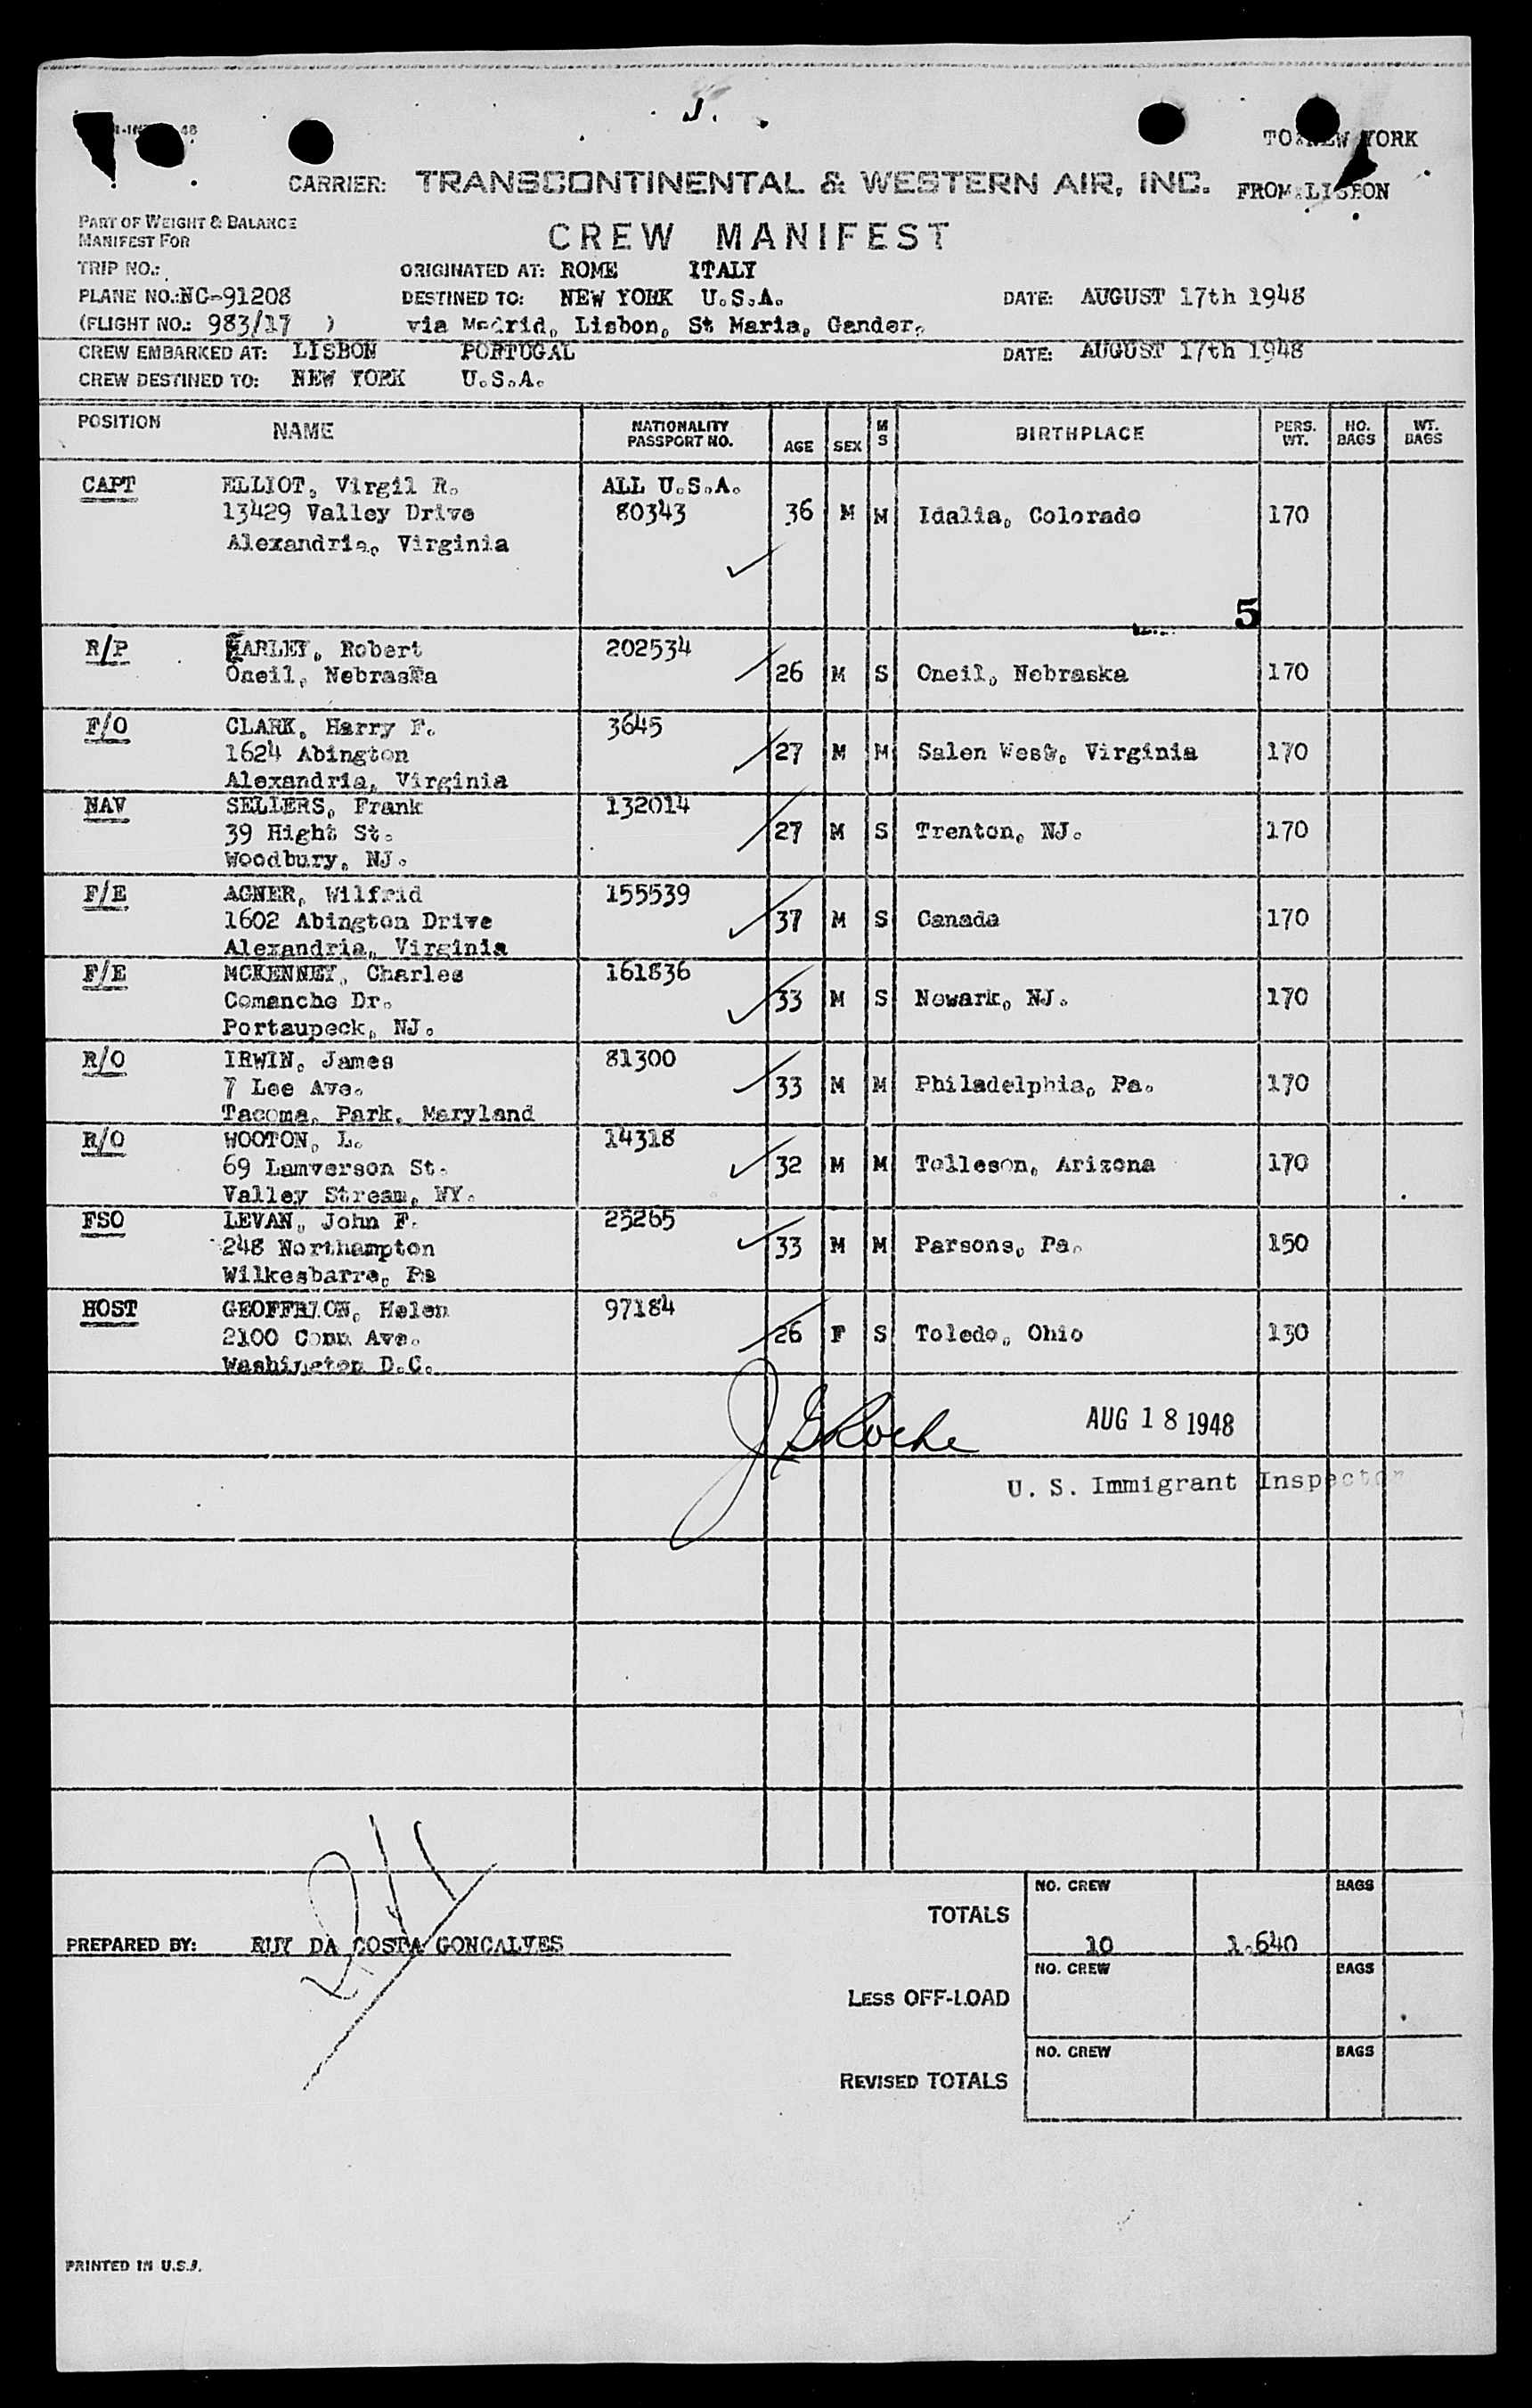 TO: NEW YORK
CARRIER: TRANSCONTINENTAL & WESTERN AIR, INC. FROM: LISBON
PART OF WEIGHT & BALANCE
MANIFEST FOR
CREW MANIFEST
TRIP NO.: ORIGINATED AT: ROME ITALY
PLANE NO.: NC-91208 DESTINED TO: NEW YORK U.S.A. DATE: AUGUST 17th 1948
(FLIGHT NO.: 983/17 ) via Madrid, Lisbon, St Maria, Gander.
CREW EMBARKED AT: LISBON PORTUGAL DATE: AUGUST 17th 1948
CREW DESTINED TO: NEW YORK U.S.A.
POSITION NAME NATIONALITY PASSPORT NO. AGE SEX M S BIRTHPLACE PERS. WT. NO. BAGS WT. BAGS
CAPT ELLIOT, Virgil R. ALL U.S.A.
13429 Valley Drive 80343 36 M M Idalia, Colorado 170
Alexandria, Virginia
5
R/P HARLEY, Robert 202534
Oneil, Nebraska 26 M S Oneil, Nebraska 170
F/O CLARK, Harry F. 3645
1624 Abington 27 M M Salen West, Virginia 170
Alexandria, Virginia
NAV SELLERS, Frank 132014
39 Hight St. 27 M S Trenton, NJ. 170
Woodbury, NJ.
F/E AGNER, Wilfrid 155539
1602 Abington Drive 37 M S Canada 170
Alexandria, Virginia
F/E MCKENNEY, Charles 161836
Comanche Dr. 33 M S Newark, NJ. 170
Portaupeck, NJ.
R/O IRWIN, James 81300
7 Lee Ave. 33 M M Philadelphia, Pa. 170
Tacoma, Park, Maryland
R/O WOOTON, L. 14318
69 Lamverson St. 32 M M Tolleson, Arizona 170
Valley Stream, NY.
FSO LEVAN, John F. 25265
248 Northampton 33 M M Parsons, Pa. 150
Wilkesbarre, Pa
HOST GEOFFRION, Helen 97184
2100 Conn Ave. 26 F S Toledo, Ohio 130
Washington D.C.
J G Roche AUG 18 1948
U. S. Immigrant Inspector
NO. CREW BAGS
TOTALS
PREPARED BY: RUY DA COSTA GONCALVES 10 1.640
NO. CREW BAGS
LESS OFF-LOAD
NO. CREW BAGS
REVISED TOTALS
PRINTED IN U.S.A.